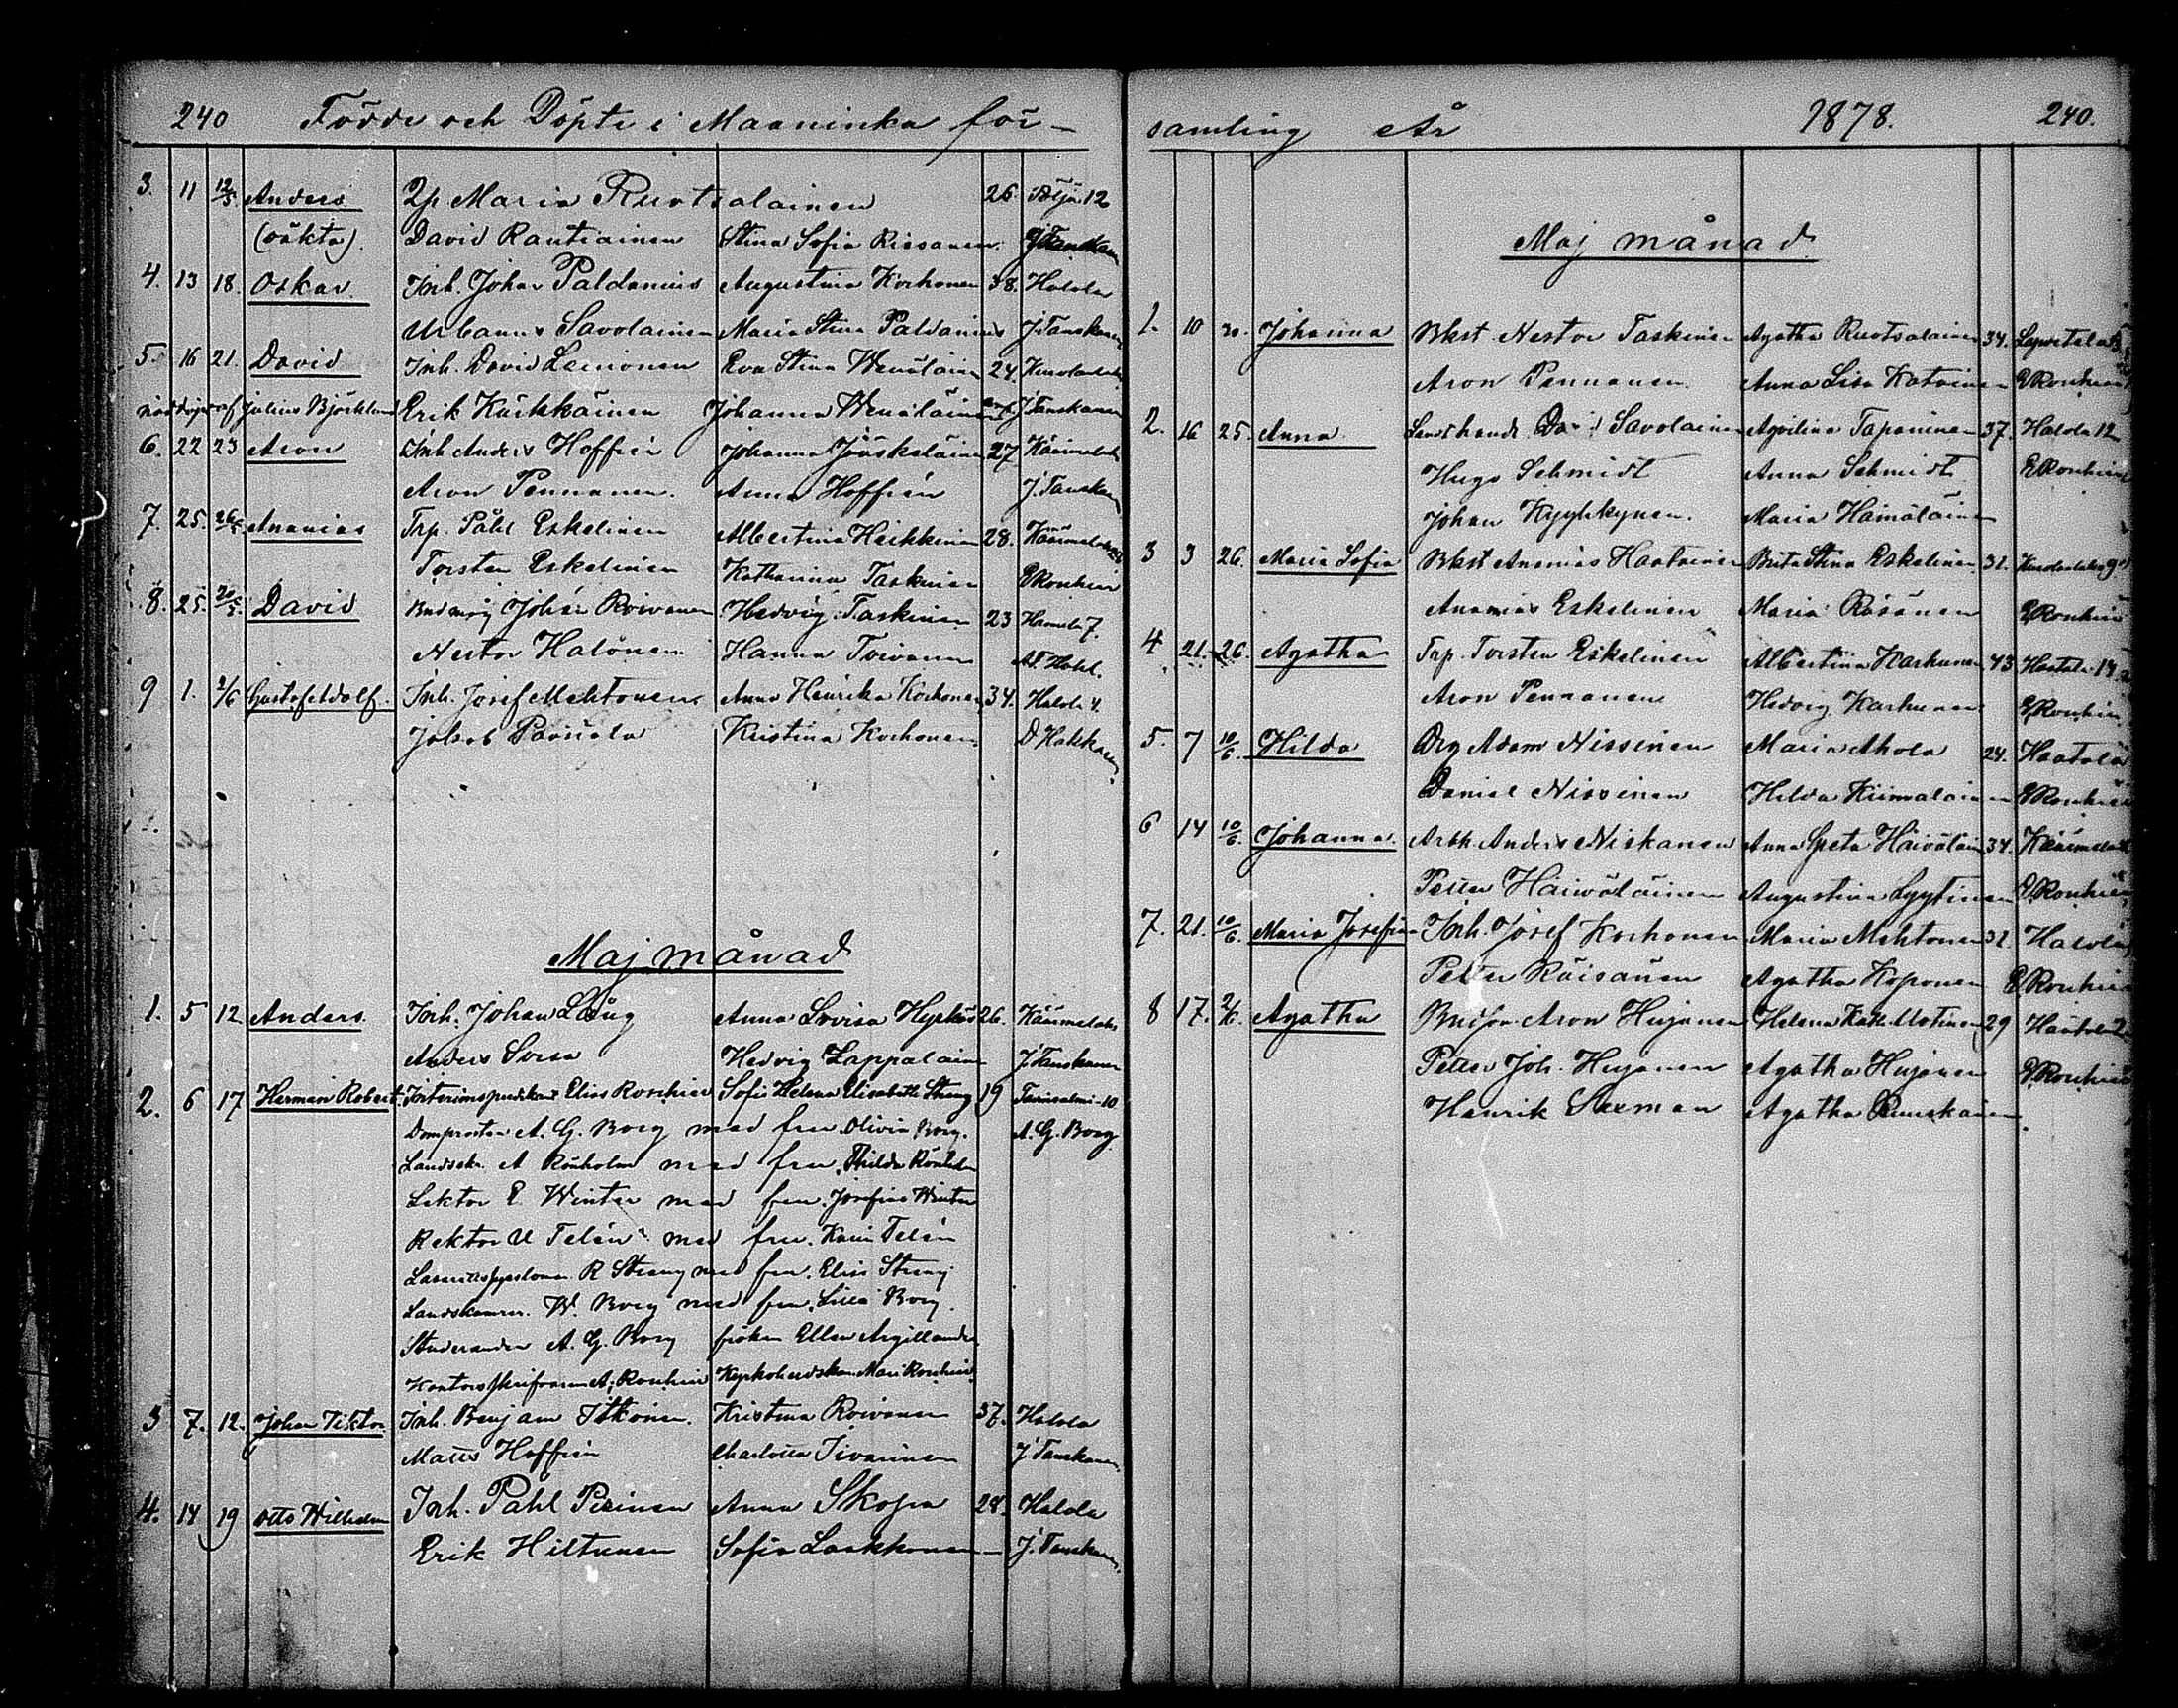 240 Födde och Döpte i Maaninka för-
3. 11 12/5 Anders Qp Maria Ruotsalainen 26. Pöljä 12
(oäkta). David Rautiainen Stina Sofia Rissanen J Tanskan
4. 13 18. Oskar Inh. Johan Paldanius Augustina Korhonen 38. Halola
Urbanus Savolainen Maria Stina Paldanius J. Tanskanen
5. 16 21. David Inh. David Leinonen Eva Stina Wenäläinen 24.
nöddöpt af Julius Björklund Erik Kärkkäinen Johanna Wenäläinen J Tanskanen
6. 22 23 Aron Inh Anders Hoffrén Johanna Jääskeläinen 27 Käärmelaks
Aron Pennanen. Anna Hoffrén J. Tanskan
7. 25. 26/5 Ananias Trp. Påhl Eskelinen Albertina Heikkinen 28. Käärmelaks
Torsten Eskelinen Katharina Taskinen E Roschier
8. 25. David Johan Roivanen Hedvig Taskinen 23 Hamula 7.
Nestor Halonen Hanna Toivanen
9 1. 2/6 Gustaf Adolf. Inh. Josef Mehtonen Anna Henrika Korhonen 34. Halola 4.
Jakob Kristina Korhonen. D Hakkaran
Maj månad
1. 5 12 Anders. Inh. Johan Anna Lovisa 26. Käärmelaks
Anders Sorsa Hedvig Lappalain J. Tanskanen
2. 6 17 Herman Robert. Interimspredikant Elias Roschier Sofie Helena Elisabeth Streng 19 10
Domprosten A. G. Borg med fru Olivia Borg. A. G. Borg
Landssek. A Rönholm med fru, Thilda Rönholm
Lektor E. Winter med fru. Josefine Winter
Rektor U Telén med fru. Karin Telén
R Streng med fru. Elise Streng
Landskamrer. W. Borg med fru, Lilla Borg.
Studeranden A. G. Borg fröken Ellen Argillander
Kontorsskrifvaren A. Roschier Kyrkoherdskan Mari Roschier.
3 7. 12. Johan Viktor. Inh. Benjam Itkonen. Kristina Roivanen 37. Halola
Matts Hoffrén Charlotta Tivarinen J Tanskanen.
4. 14 19 Otto Wilhelm Inh. Pahl Piirinen Anna Skopa 28. Halola
Erik Hiltunen Sofia Laakkonen J. Tanskanen.
samling År 1878. 240.
Maj månad
1. 10 20. Johanna Bkst. Nestor Taskinen Agatha Ruotsalainen 34.
Aron Pennanen. Anna Lisa Katainen E Roschier
2. 16 25. Anna Landthandl. David Savolainen Aqvilina Tapaninen 37. Halola 12
Hugo Schmidt Anna Schmidt E Roschier
Johan Kyyhkynen. Maria Hämäläinen
3 3 26. Maria Sofia Bkst Ananias Haatainen Brita Stina Eskelinen 31.
Ananias Eskelinen Maria Räsänen E Roschier
4 21. 26. Agatha Trp. Torsten Eskelinen Albertina Karhunen 43 Haatala 14
Aron Pennanen Hedvig Karhunen E Roschier
5. 7 10/6. Hilda Drg Adam Nissinen Maria Ahola 24. Haatala
Daniel Nissinen Hilda Kiimalainen E Roschier
6 14 10/6. Johanna. Arbk. Anders Niskanen Anna Greta Häivälain 34. Käärmelaks
Petter Häiväläinen Augustina Lyytinen E Roschier
7. 21. 10/6. Maria Josefina Inh. Josef Korhonen Maria Mehtonen 31. Halola
Petter Räisänen Agatha Koponen E Roschier
8 17. Agatha Bndson Aron Hujanen Helena Kath. Motinen 29 Haatala 2
Petter Joh. Hujanen Agatha Hujanen E. Roschier
Henrik Seeman Agatha Ruuskainen